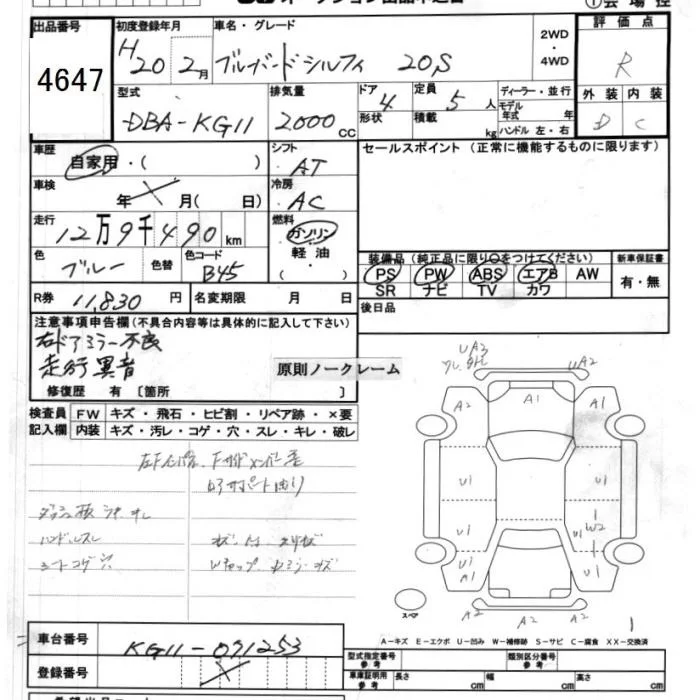 出品番号 初度登録年月 車名・グレード 2WD・4WD 評価点
4647 H20 2月 ブルーバードシルフィ 20S R
型式 排気量 ドア 4 定員 5人 ディーラー・並行 外装 内装
DBA-KG11 2000cc 形状 積載 kg モデル年式 年 ハンドル 左・右 D C
車歴 自家用・( ) シフト AT セールスポイント (正常に機能するものに限ります)
車検 年 月( 日) 冷房 AC
走行 12万9千490km 燃料 ガソリン 軽油 ・( )
色 ブルー 色替 色コード B45
装備品 (純正品に限り○をつけてください) 新車保証書
PS PW ABS エアB AW 有・無
SR ナビ TV カワ
R券 11,830円 名変期限 月 日 後日品
注意事項申告欄 (不具合内容等は具体的に記入して下さい)
右ドアミラー不良
走行異音
原則ノークレーム
修復歴 有 〔箇所 〕
検査員記入欄 FW キズ・飛石・ヒビ割・リペア跡・×要
内装 キズ・汚レ・コゲ・穴・スレ・キレ・破レ
ハンドルスレ
シートコゲ穴
UA3
UA2
A2 A1 A1
U1 U1
U1 U1 W2
U1 A1 U1
A2 A2 A2
スペア
1
A-キズ E-エクボ U-凹み W-補修跡 S-サビ C-腐食 XX-交換済
車台番号 KG11-091253
登録番号
型式指定番号 参考 類別区分番号 参考
車庫証明用 参考 長さ cm 幅 cm 高さ cm